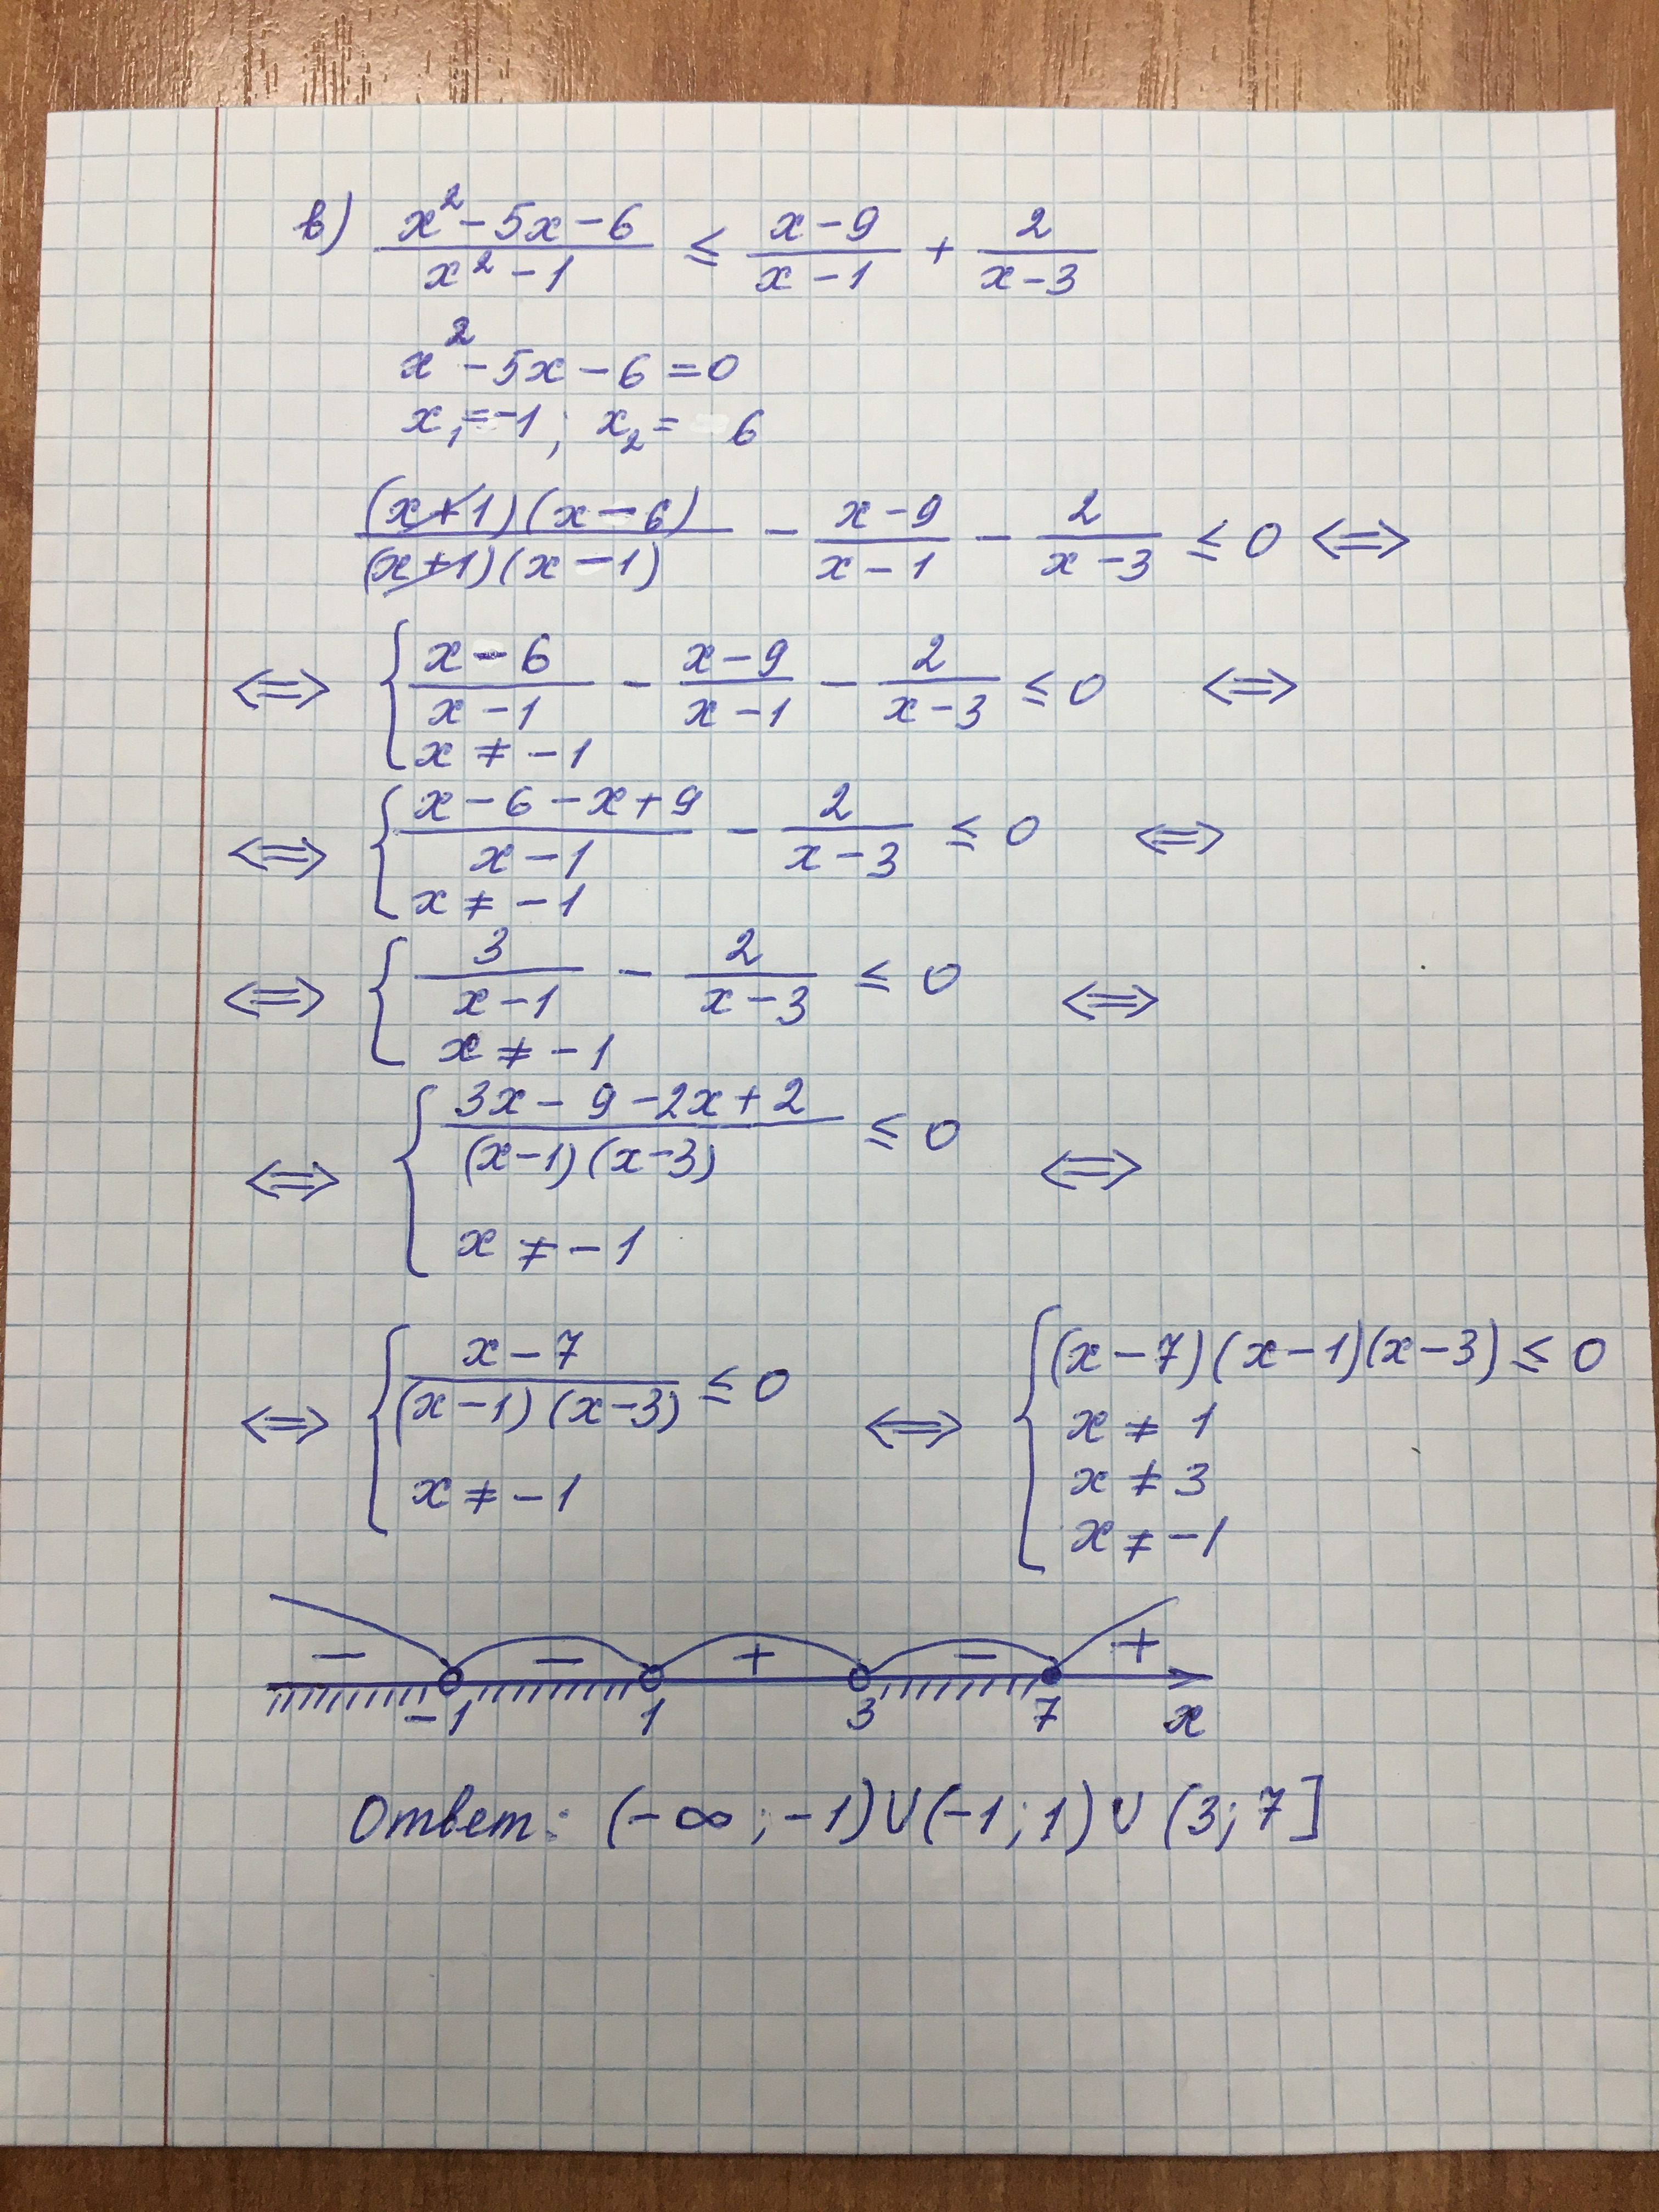 в) (x² - 5x - 6)/(x² - 1) ≤ (x - 9)/(x - 1) + 2/(x - 3)
x² - 5x - 6 = 0
x₁ = -1; x₂ = 6
((x+1)(x-6))/((x+1)(x-1)) - (x-9)/(x-1) - 2/(x-3) ≤ 0 ⟺
⟺ { (x-6)/(x-1) - (x-9)/(x-1) - 2/(x-3) ≤ 0 ⟺
x ≠ -1
⟺ { (x-6-x+9)/(x-1) - 2/(x-3) ≤ 0 ⟺
x ≠ -1
⟺ { 3/(x-1) - 2/(x-3) ≤ 0 ⟺
x ≠ -1
⟺ { (3x-9-2x+2)/((x-1)(x-3)) ≤ 0 ⟺
x ≠ -1
⟺ { (x-7)/((x-1)(x-3)) ≤ 0 ⟺ { (x-7)(x-1)(x-3) ≤ 0
x ≠ 1
x ≠ 3
x ≠ -1 x ≠ -1
- - + - +
-1 1 3 7 x
Ответ: (-∞; -1)∪(-1; 1)∪(3; 7]